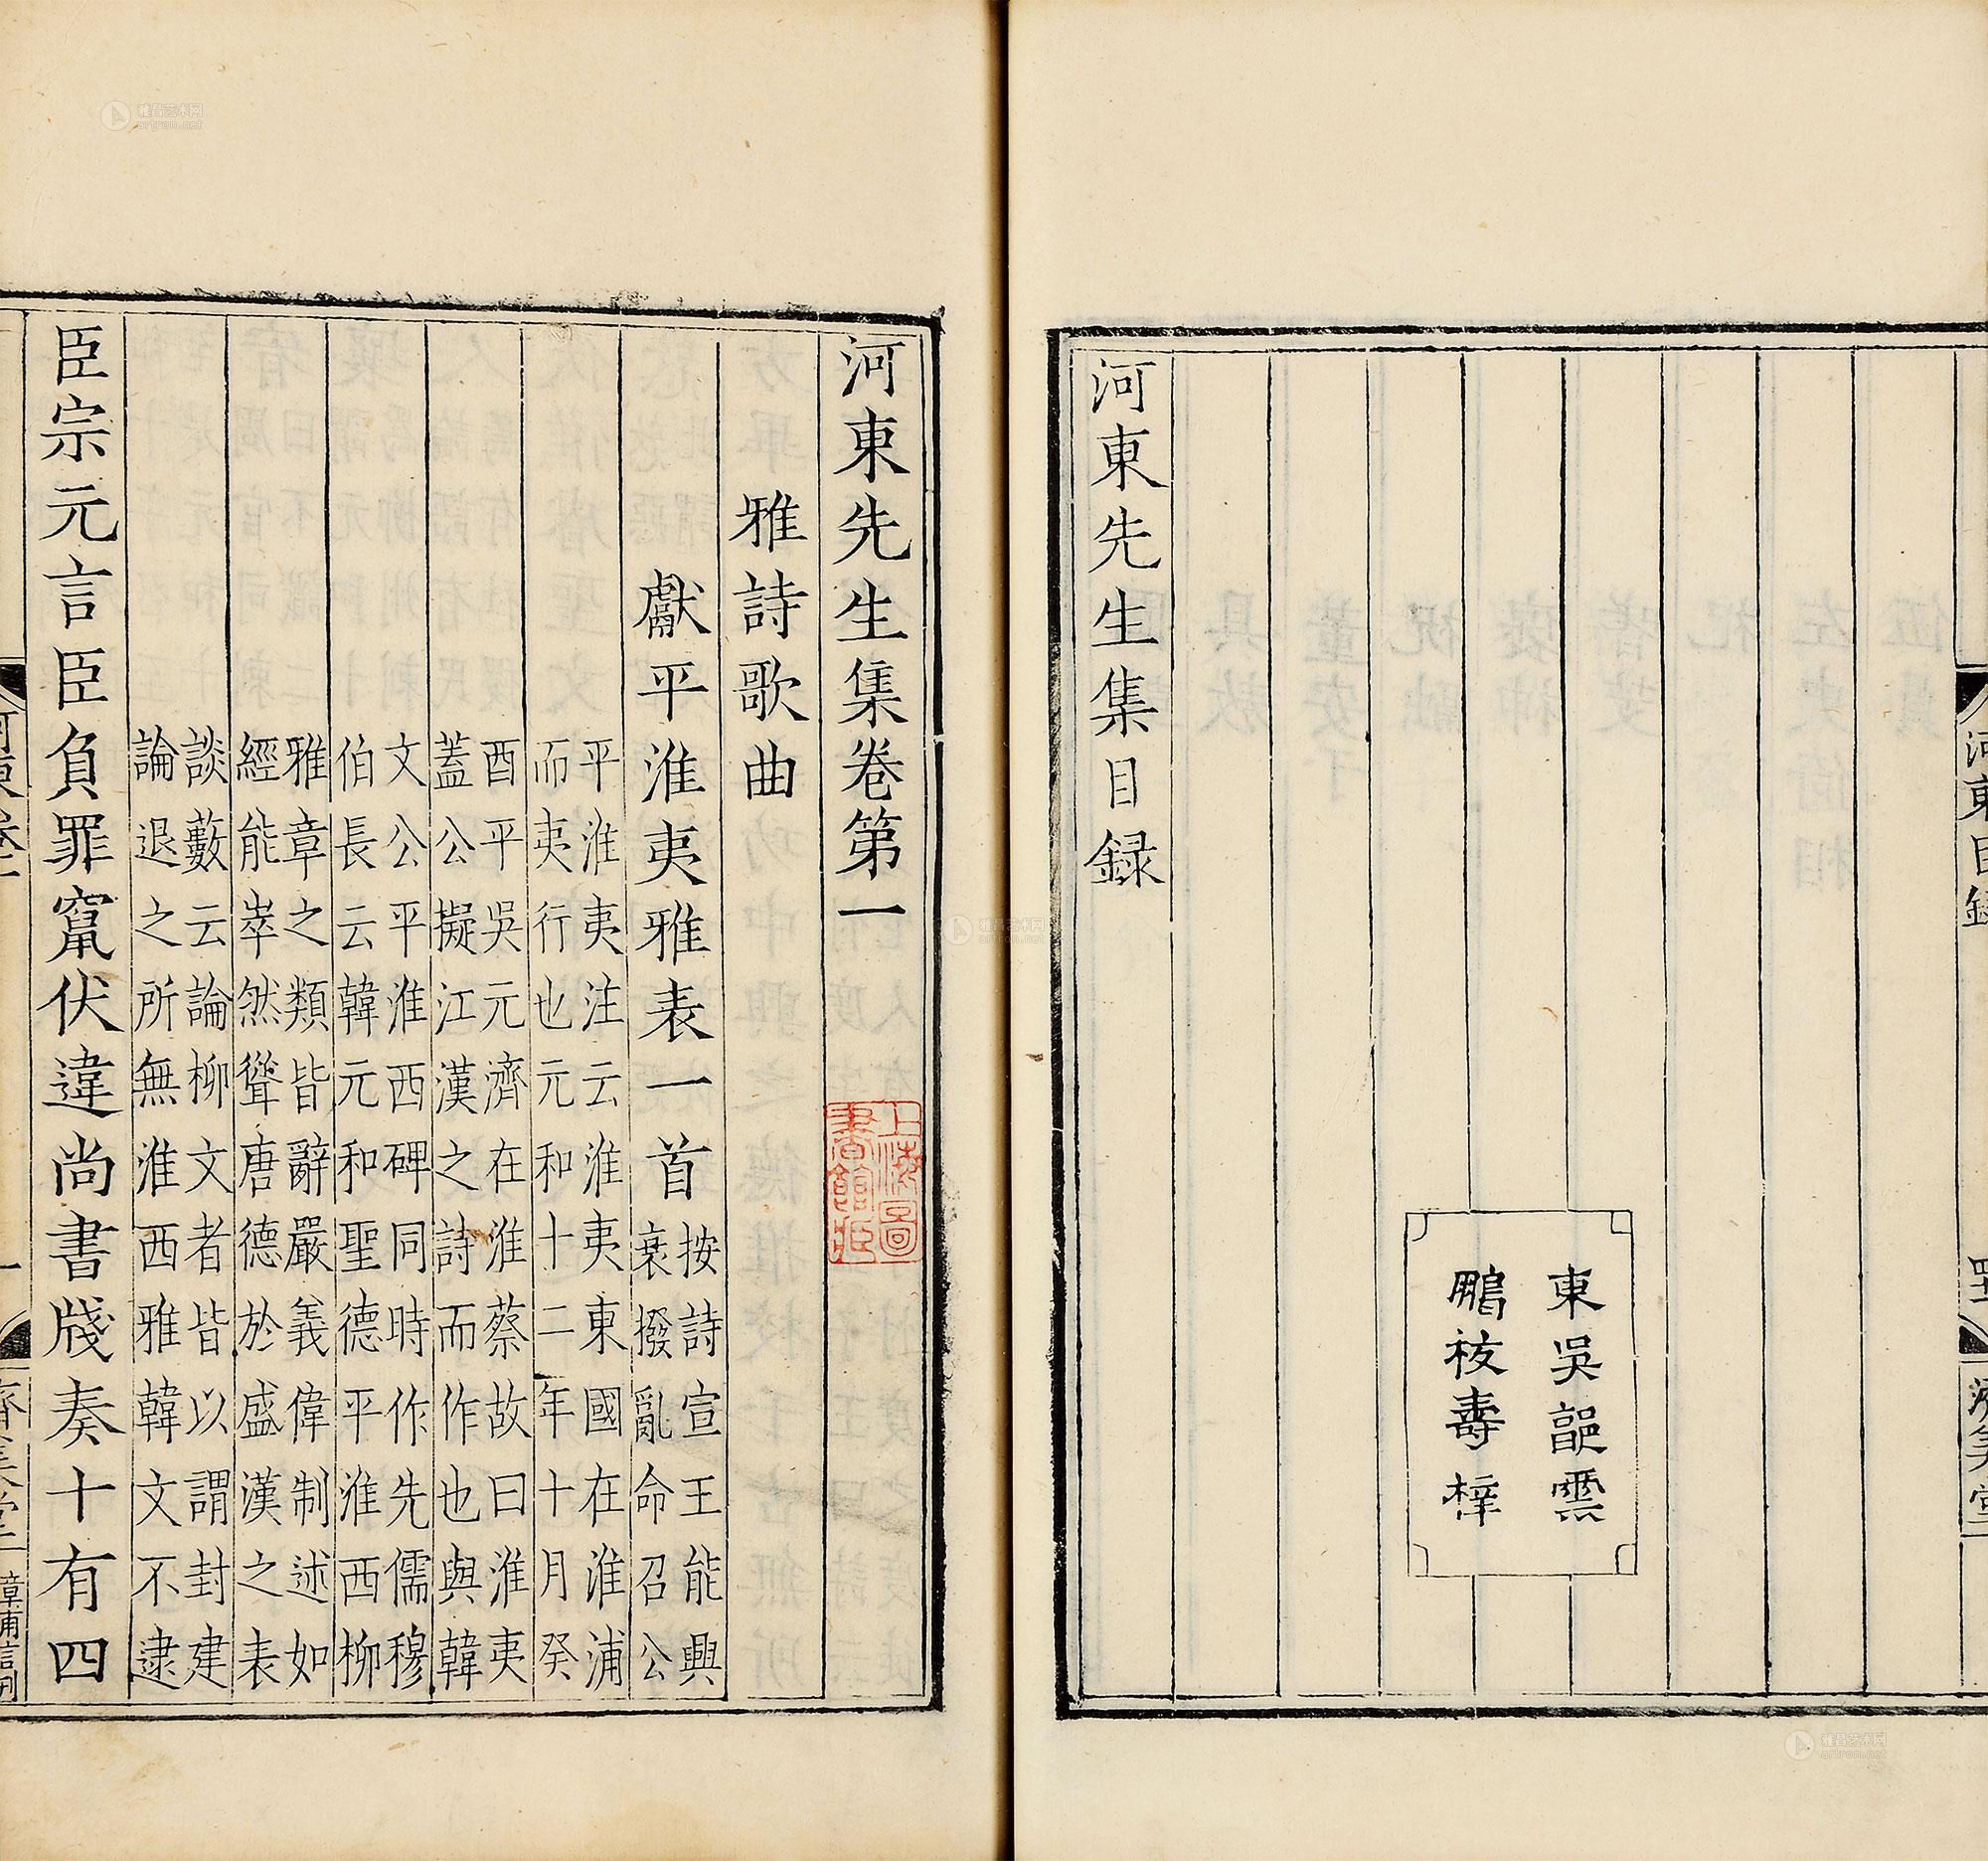 東吳郭雲
鵬校壽梓
河東先生集目録
河東先生集卷第一
上海圖
書館藏
雅詩歌曲
獻平淮夷雅表一首
按詩宣王能興
衰撥亂命召公
平淮夷注云淮夷東國在淮浦
而夷行也元和十二年十月癸
酉平吳元濟在淮蔡故曰淮夷
蓋公擬江漢之詩而作也與韓
文公平淮西碑同時作先儒穆
伯長云韓元和聖德平淮西柳
雅章之類皆辭嚴義偉制述如
經能崒然聳唐德於盛漢之表
談藪云論柳文者皆以謂封建
論退之所無淮西雅韓文不逮
臣宗元言臣負罪竄伏違尚書牋奏十有四
雅昌艺术网
artron.net